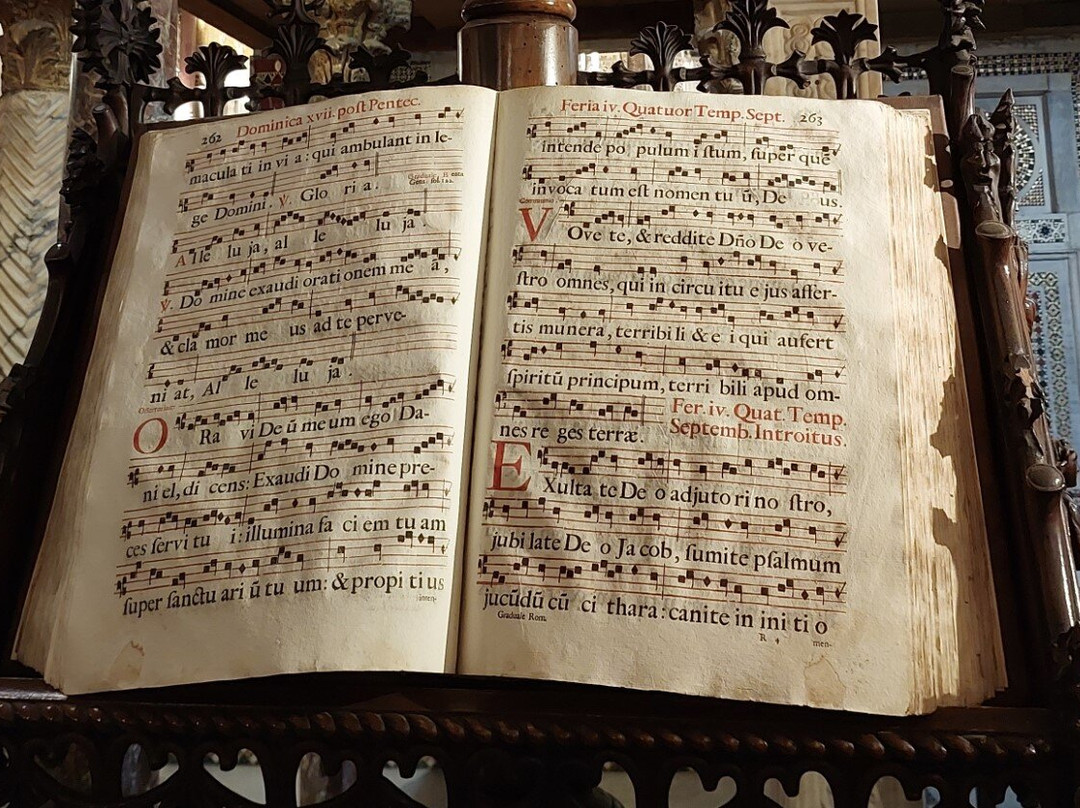 262 Dominica xvii. post Pentec.
macula ti in vi a : qui ambulant in le-
ge Domini . ℣. Glo ri a .
Alle lu ja, al le lu ja .
℣. Do mine exaudi orati onem me a ,
& cla mor me us ad te perve-
ni at, Al le lu ja .
Offertorium
O Ra vi De ū me um ego Da-
ni el, di cens: Exaudi Do mine pre-
ces servi tu i : illumina fa ci em tu am
super sanctu ari ū tu um: & propi ti us
inten-
Feria iv. Quatuor Temp. Sept. 263
intende po pulum i stum, super quē
invoca tum est nomen tu ū, De us.
Communio
V Ove te, & reddite Dño De o ve-
stro omnes, qui in circu itu e jus affer-
tis munera, terribi li & e i qui aufert
spiritū principum, terri bili apud om-
nes re ges terræ.
Fer. iv. Quat. Temp.
Septemb. Introitus.
E Xulta te De o adjuto ri no stro,
jubi late De o Ja cob, sumite psalmum
jucūdū cū ci thara : canite in ini ti o
Graduale Rom. R 4 men-